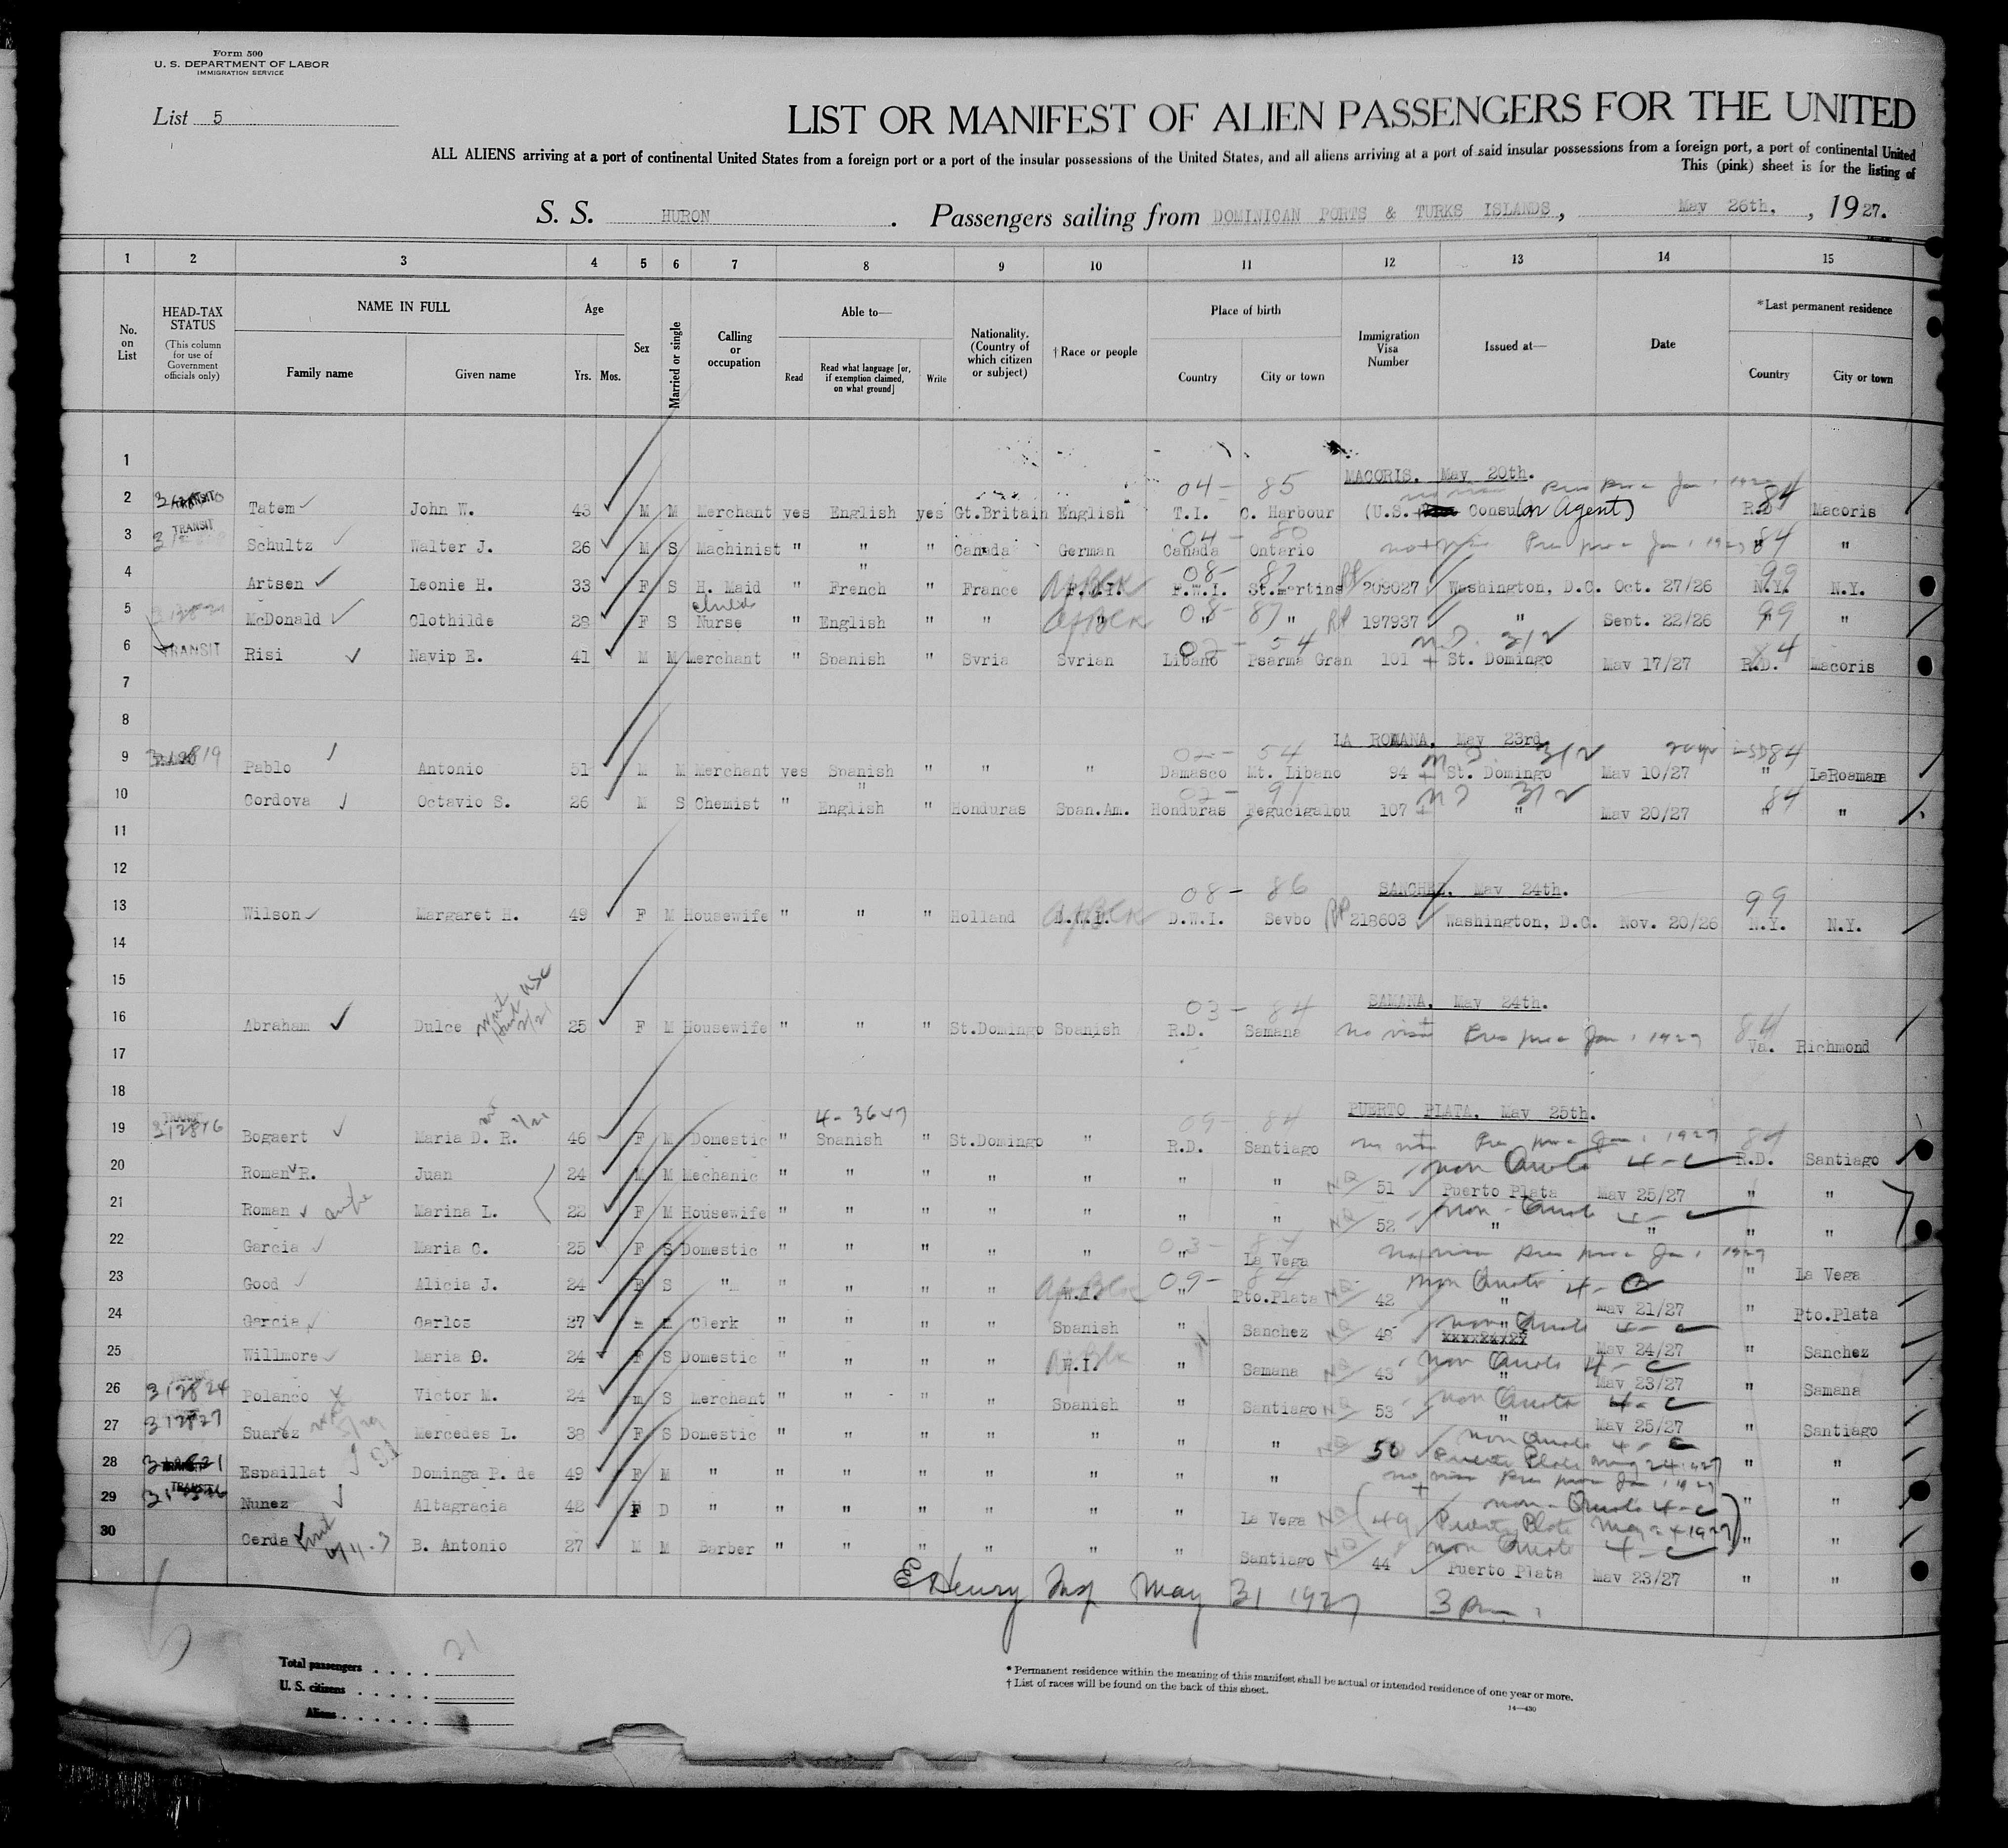 Form 500
U. S. DEPARTMENT OF LABOR
IMMIGRATION SERVICE
List 5
LIST OR MANIFEST OF ALIEN PASSENGERS FOR THE UNITED
ALL ALIENS arriving at a port of continental United States from a foreign port or a port of the insular possessions of the United States, and all aliens arriving at a port of said insular possessions from a foreign port, a port of continental United
This (pink) sheet is for the listing of
S. S. HURON. Passengers sailing from DOMINICAN PORTS & TURKS ISLANDS, May 26th., 1927.
1 2 3 4 5 6 7 8 9 10 11 12 13 14 15
No. on List
HEAD-TAX STATUS (This column for use of Government officials only)
NAME IN FULL Family name Given name
Age Yrs. Mos.
Sex
Married or single
Calling or occupation
Able to— Read Read what language [or, if exemption claimed, on what ground] Write
Nationality. (Country of which citizen or subject)
† Race or people
Place of birth Country City or town
Immigration Visa Number
Issued at—
Date
*Last permanent residence Country City or town
1
MACORIS, May 20th.
04- 85 no visa Prev Jan. 1927 84
2 TRANSIT Tatem John W. 43 M M Merchant yes English yes Gt.Britain English T.I. C. Harbour (U.S. Consular Agent) R.D. Macoris
04- 80
3 TRANSIT Schultz Walter J. 26 M S Machinist " " " Canada German Canada Ontario Jan. 1927 84 " "
08- 87 99
4 Artsen Leonie H. 33 F S H. Maid " " French " France F.W.I. F.W.I. St.Martins RP 209027 Washington, D.C. Oct. 27/26 N.Y. N.Y.
5 McDonald Clothilde 28 F S childs Nurse " English " " AfBlk " 08- " 87 " RP 197937 " Sept. 22/26 99 " "
02- 54 N.D. 312 84
6 TRANSIT Risi Navip E. 41 M M Merchant " Spanish " Syria Syrian Libano Psarma Gran 101 St. Domingo May 17/27 R.D. Macoris
7
8
LA ROMANA, May 23rd.
02- 54 312 84
9 312819 Pablo Antonio 51 M M Merchant yes Spanish " " " Damasco Mt. Libano 94 St. Domingo May 10/27 " LaRoamana
02- 91 312 84
10 Cordova Octavio S. 26 M S Chemist " " English " Honduras Span.Am. Honduras Tegucigalou 107 " May 20/27 " "
11
12
SANCHEZ, May 24th.
08- 86 99
13 Wilson Margaret H. 49 F M Housewife " " " Holland D.W.I. AfBlk D.W.I. Seybo RP 218603 Washington, D.C. Nov. 20/26 N.Y. N.Y.
14
15
SAMANA, May 24th.
03- 84
16 Abraham Dulce 25 F M Housewife " " " St.Domingo Spanish R.D. Samana no visa Jan. 1927 84 Va. Richmond
17
18
PUERTO PLATA, May 25th.
4-3647 09- 84
19 TRANSIT 312816 Bogaert Maria D. R. 46 F M Domestic " Spanish " St.Domingo " R.D. Santiago no visa Jan. 1927 84 R.D. Santiago
Non Quota 4-C
20 Roman R. Juan 24 M M Mechanic " " " " " " " NQ 51 Puerto Plata May 25/27 " "
Non-Quota 4-C
21 Roman wife Marina L. 22 F M Housewife " " " " " " " NQ 52 " " " "
22 Garcia Maria C. 25 F S Domestic " " " " " 03- " La Vega no visa Jan. 1927 " La Vega
Non Quota 4-C
23 Good Alicia J. 24 F S " " " " " W.I. AfBlk 09- " 84 Pto.Plata NQ 42 " May 21/27 " Pto.Plata
Non Quota 4-C
24 Garcia Carlos 27 m m Clerk " " " " Spanish " Sanchez NQ 48 " May 24/27 " Sanchez
Non Quota 4-C
25 Willmore Maria D. 24 F S Domestic " " " " W.I. AfBlk " Samana NQ 43 " May 23/27 " Samana
Non Quota 4-C
26 312824 Polanco Victor M. 24 m S Merchant " " " " Spanish " Santiago NQ 53 " May 25/27 " Santiago
Non Quota 4-C
27 312827 Suarez Mercedes L. 38 F S Domestic " " " " " " " NQ 50 Puerto Plata May 24 1927 " "
28 TRANSIT Espaillat Dominga P. de 49 F M " " " " " " " " no visa Jan. 1927 " "
Non-Quota 4-C
29 TRANSIT Nunez Altagracia 42 F D " " " " " " " La Vega NQ 49 Puerto Plata May 24 1927 " "
Non Quota 4-C
30 Cerda B. Antonio 27 M M Barber " " " " " " Santiago NQ 44 Puerto Plata May 23/27 " "
E Henry Insp May 31 1927 3 pm.
Total passengers 21
U. S. citizens
Aliens
* Permanent residence within the meaning of this manifest shall be actual or intended residence of one year or more.
† List of races will be found on the back of this sheet.
14—430